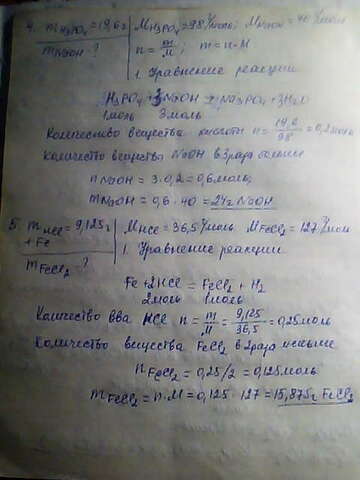 4. mH3PO4 = 19,6 г MH3PO4 = 98 г/моль; MNaOH = 40 г/моль
mNaOH - ? n = m/M ; m = n·M
1. Уравнение реакции
H3PO4 + 3NaOH = Na3PO4 + 3H2O
1моль 3 моль
Количество вещества кислоты n = 19,6/98 = 0,2 моль
Количество вещества NaOH в 3 раза больше
nNaOH = 3 · 0,2 = 0,6 моль,
mNaOH = 0,6 · 40 = 24 г NaOH
5. mHCl = 9,125 г MHCl = 36,5 г/моль MFeCl2 = 127 г/моль
+ Fe 1. Уравнение реакции
mFeCl2 - ?
Fe + 2HCl = FeCl2 + H2
2моль 1моль
Количество вва HCl n = m/M = 9,125/36,5 = 0,25 моль
Количество вещества FeCl2 в 2 раза меньше
nFeCl2 = 0,25/2 = 0,125 моль
mFeCl2 = n·M = 0,125 · 127 = 15,875 г FeCl2